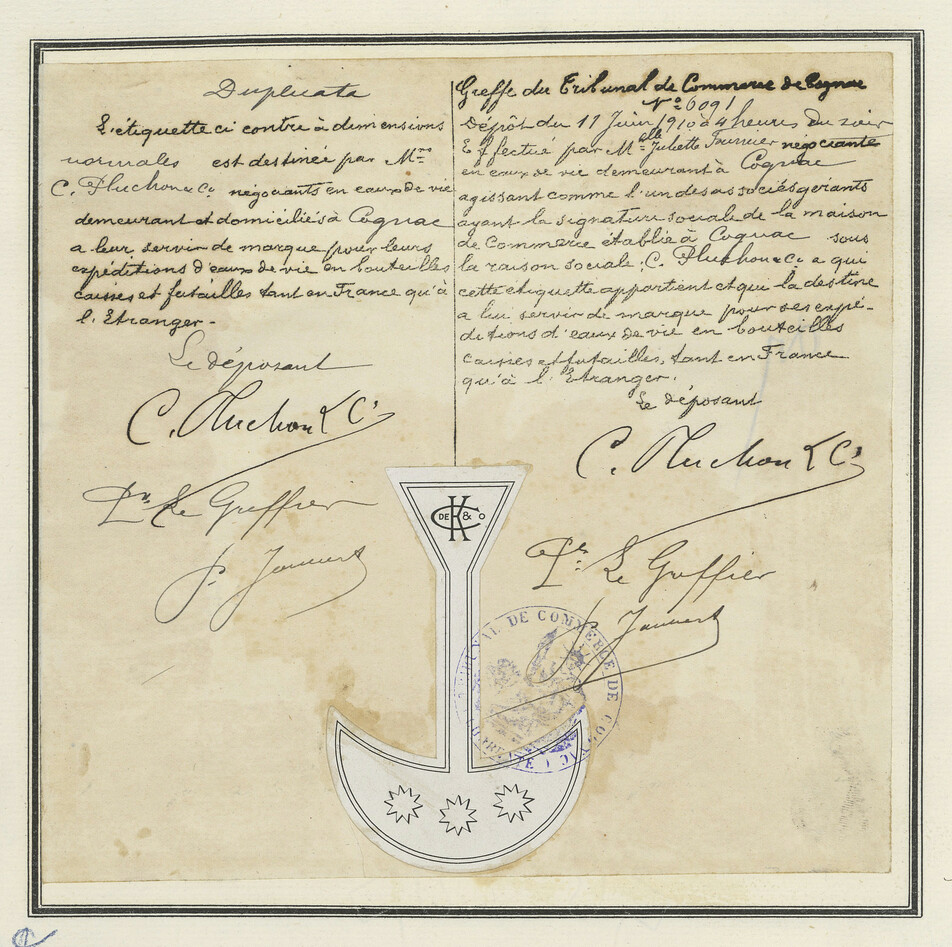 Duplicata
L'étiquette ci contre à dimensions
normales est destinée par Mrs
C. Pluchon & Co négociants en eaux de vie
demeurant et domiciliés à Cognac
a leur servir de marque pour leurs
expéditions d'eaux de vie en bouteilles
caisses et futailles tant en France qu'à
l'Etranger.
Le déposant
C. Pluchon & Co
Pr Le Greffier
J. Jaunet
Greffe du Tribunal de Commerce de Cognac
No 6091
Dépôt du 11 Juin 1910 à 4 heures du soir
Effectué par Melle Juliette Fournier négociante
en eaux de vie demeurant à Cognac
agissant comme l'un des associés gérants
ayant la signature sociale de la maison
de Commerce établie à Cognac sous
la raison sociale: C. Pluchon & Co a qui
cette etiquette appartient et qui la destine
a lui servir de marque pour ses expé-
ditions d'eaux de vie en bouteilles
caisses et futailles, tant en France
qu'à l'Etranger.
Le déposant
C. Pluchon & Co
Pr Le Greffier
J. Jaunet
DE & Co
TRIBUNAL DE COMMERCE DE COGNAC (CHARENTE)